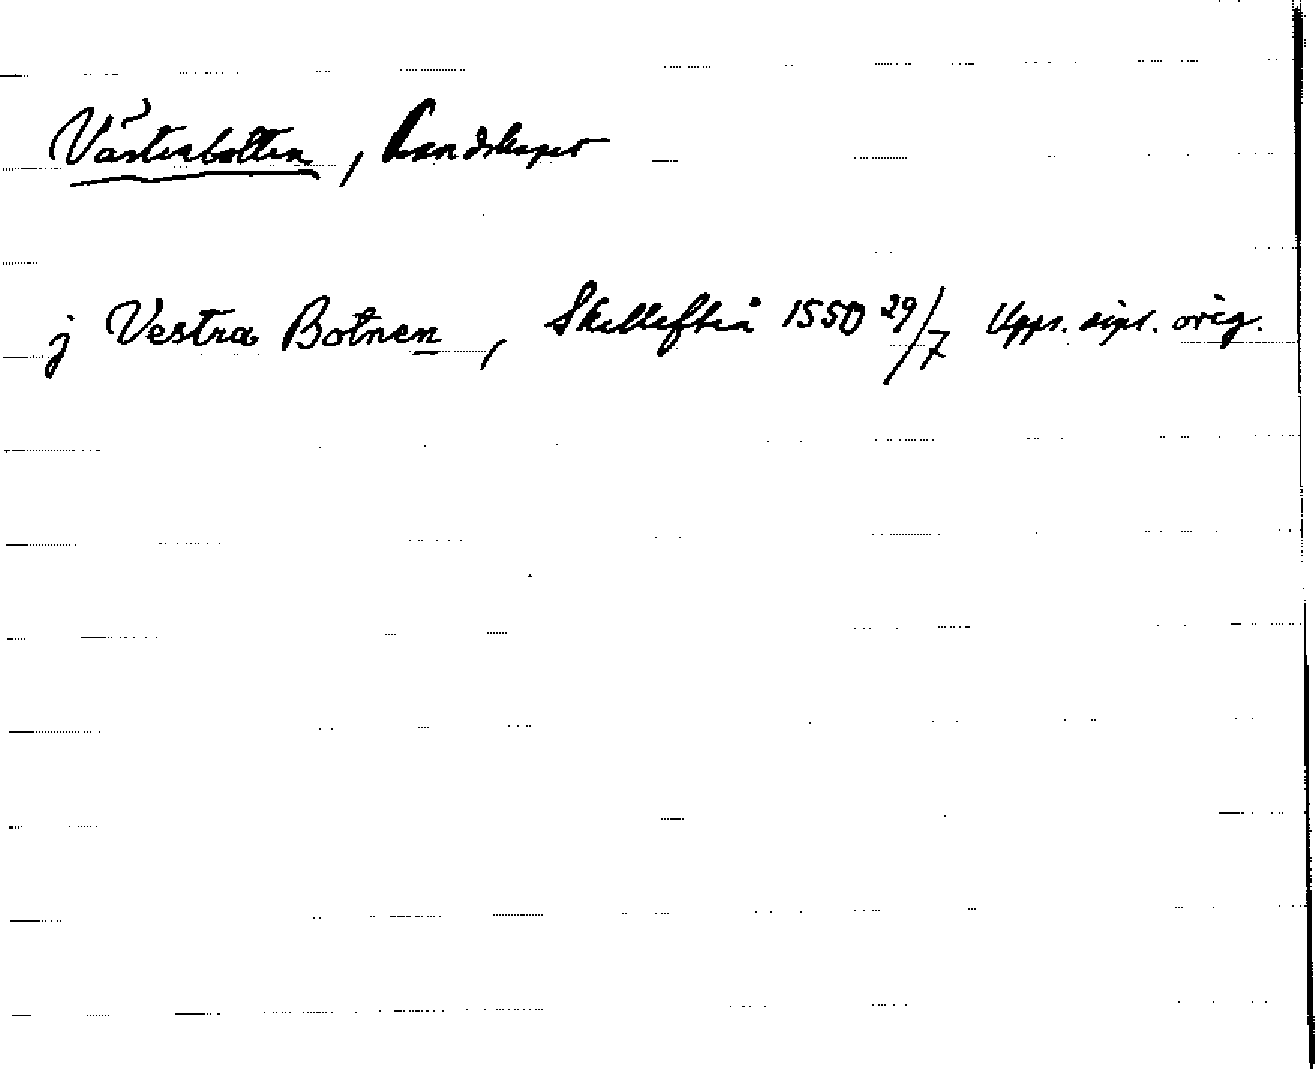 Västerbotten, landskapet
j Vestra Botnen, Skellefteå 1550 29/7 Upps. dipl. orig.